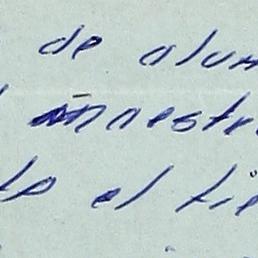 de alum
maestr
el tie